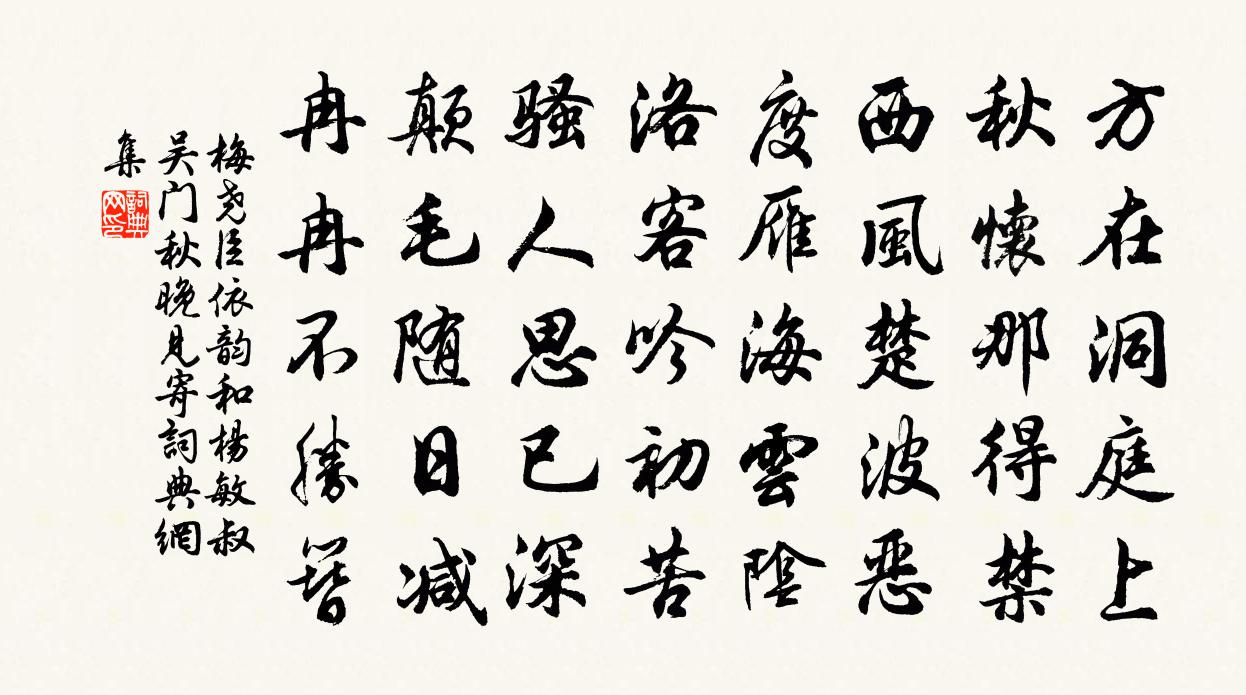 方在洞庭上
秋懷那得禁
西風楚波惡
度雁海雲陰
洛客吟初苦
騷人思已深
顛毛随日减
冉冉不勝簪
梅尧臣依韵和楊敏叔
吴门秋晚見寄詞典網
集
詞典网印